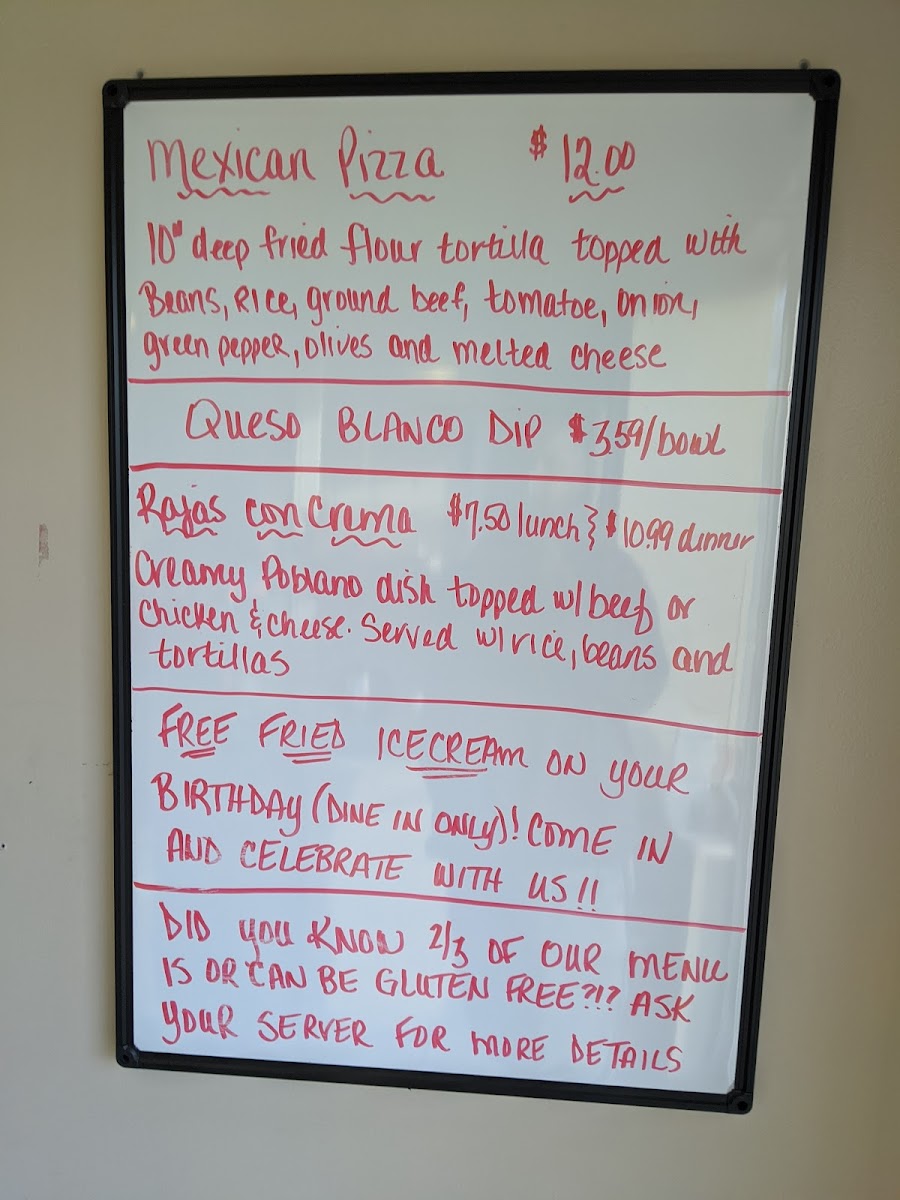 Mexican Pizza $12.00
10" deep fried flour tortilla topped with
Beans, Rice, ground beef, tomatoe, onion,
green pepper, olives and melted cheese
Queso BLANCO DIP $3.59/bowl
Rajas con Crema $7.50 lunch } $10.99 dinner
Creamy Poblano dish topped w/ beef or
Chicken & cheese. Served w/ rice, beans and
tortillas
FREE FRIED ICECREAM ON YOUR
BIRTHDAY (DINE IN ONLY)! COME IN
AND CELEBRATE WITH US!!
DID YOU KNOW 2/3 OF OUR MENU
IS OR CAN BE GLUTEN FREE?!? ASK
YOUR SERVER FOR MORE DETAILS